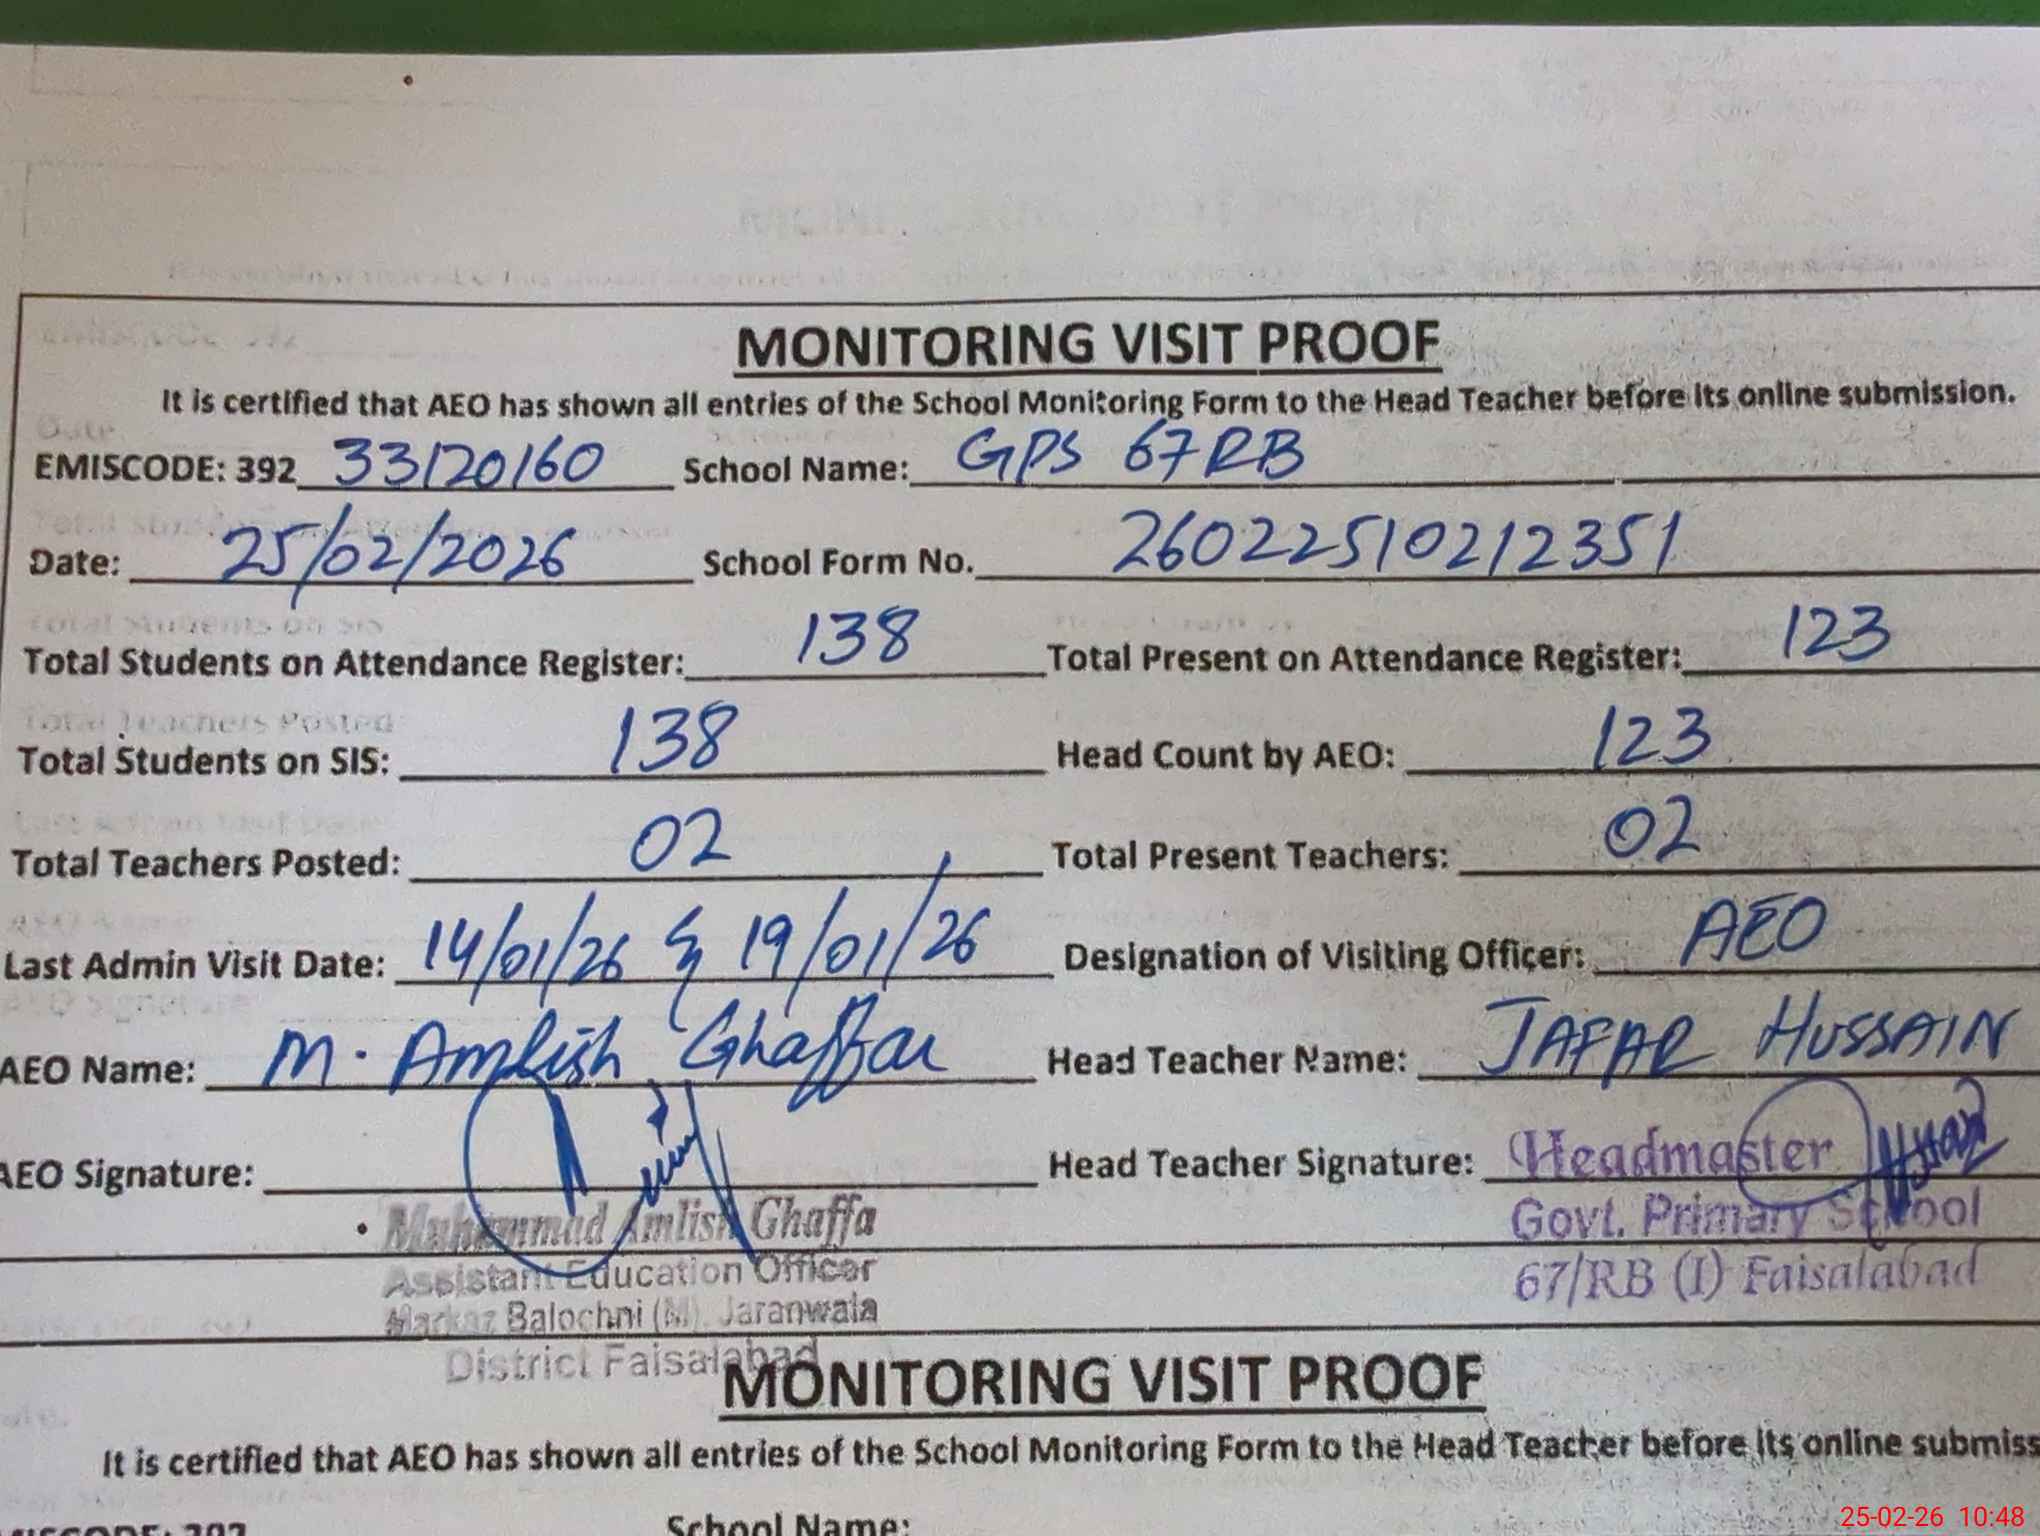 MONITORING VISIT PROOF
It is certified that AEO has shown all entries of the School Monitoring Form to the Head Teacher before its online submission.
EMISCODE: 392 33120160 School Name: GPS 67RB
Date: 25/02/2026 School Form No. 26022510212351
Total Students on Attendance Register: 138 Total Present on Attendance Register: 123
Total Students on SIS: 138 Head Count by AEO: 123
Total Teachers Posted: 02 Total Present Teachers: 02
Last Admin Visit Date: 14/01/26 & 19/01/26 Designation of Visiting Officer: AEO
AEO Name: M. Amlish Ghaffar Head Teacher Name: JAFAR HUSSAIN
AEO Signature: Head Teacher Signature: Headmaster
Muhammad Amlish Ghaffa Govt. Primary School
Assistant Education Officer 67/RB (I) Faisalabad
Markaz Balochni (M). Jaranwala
District Faisalabad
MONITORING VISIT PROOF
It is certified that AEO has shown all entries of the School Monitoring Form to the Head Teacher before its online submiss
MISCODE: 392 School Name:
25-02-26 10:48